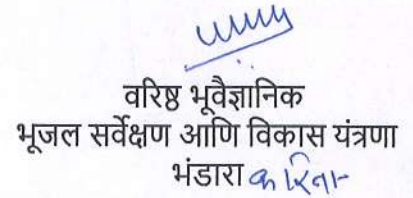 वरिष्ठ भूवैज्ञानिक
भूजल सर्वेक्षण आणि विकास यंत्रणा
भंडारा करिता